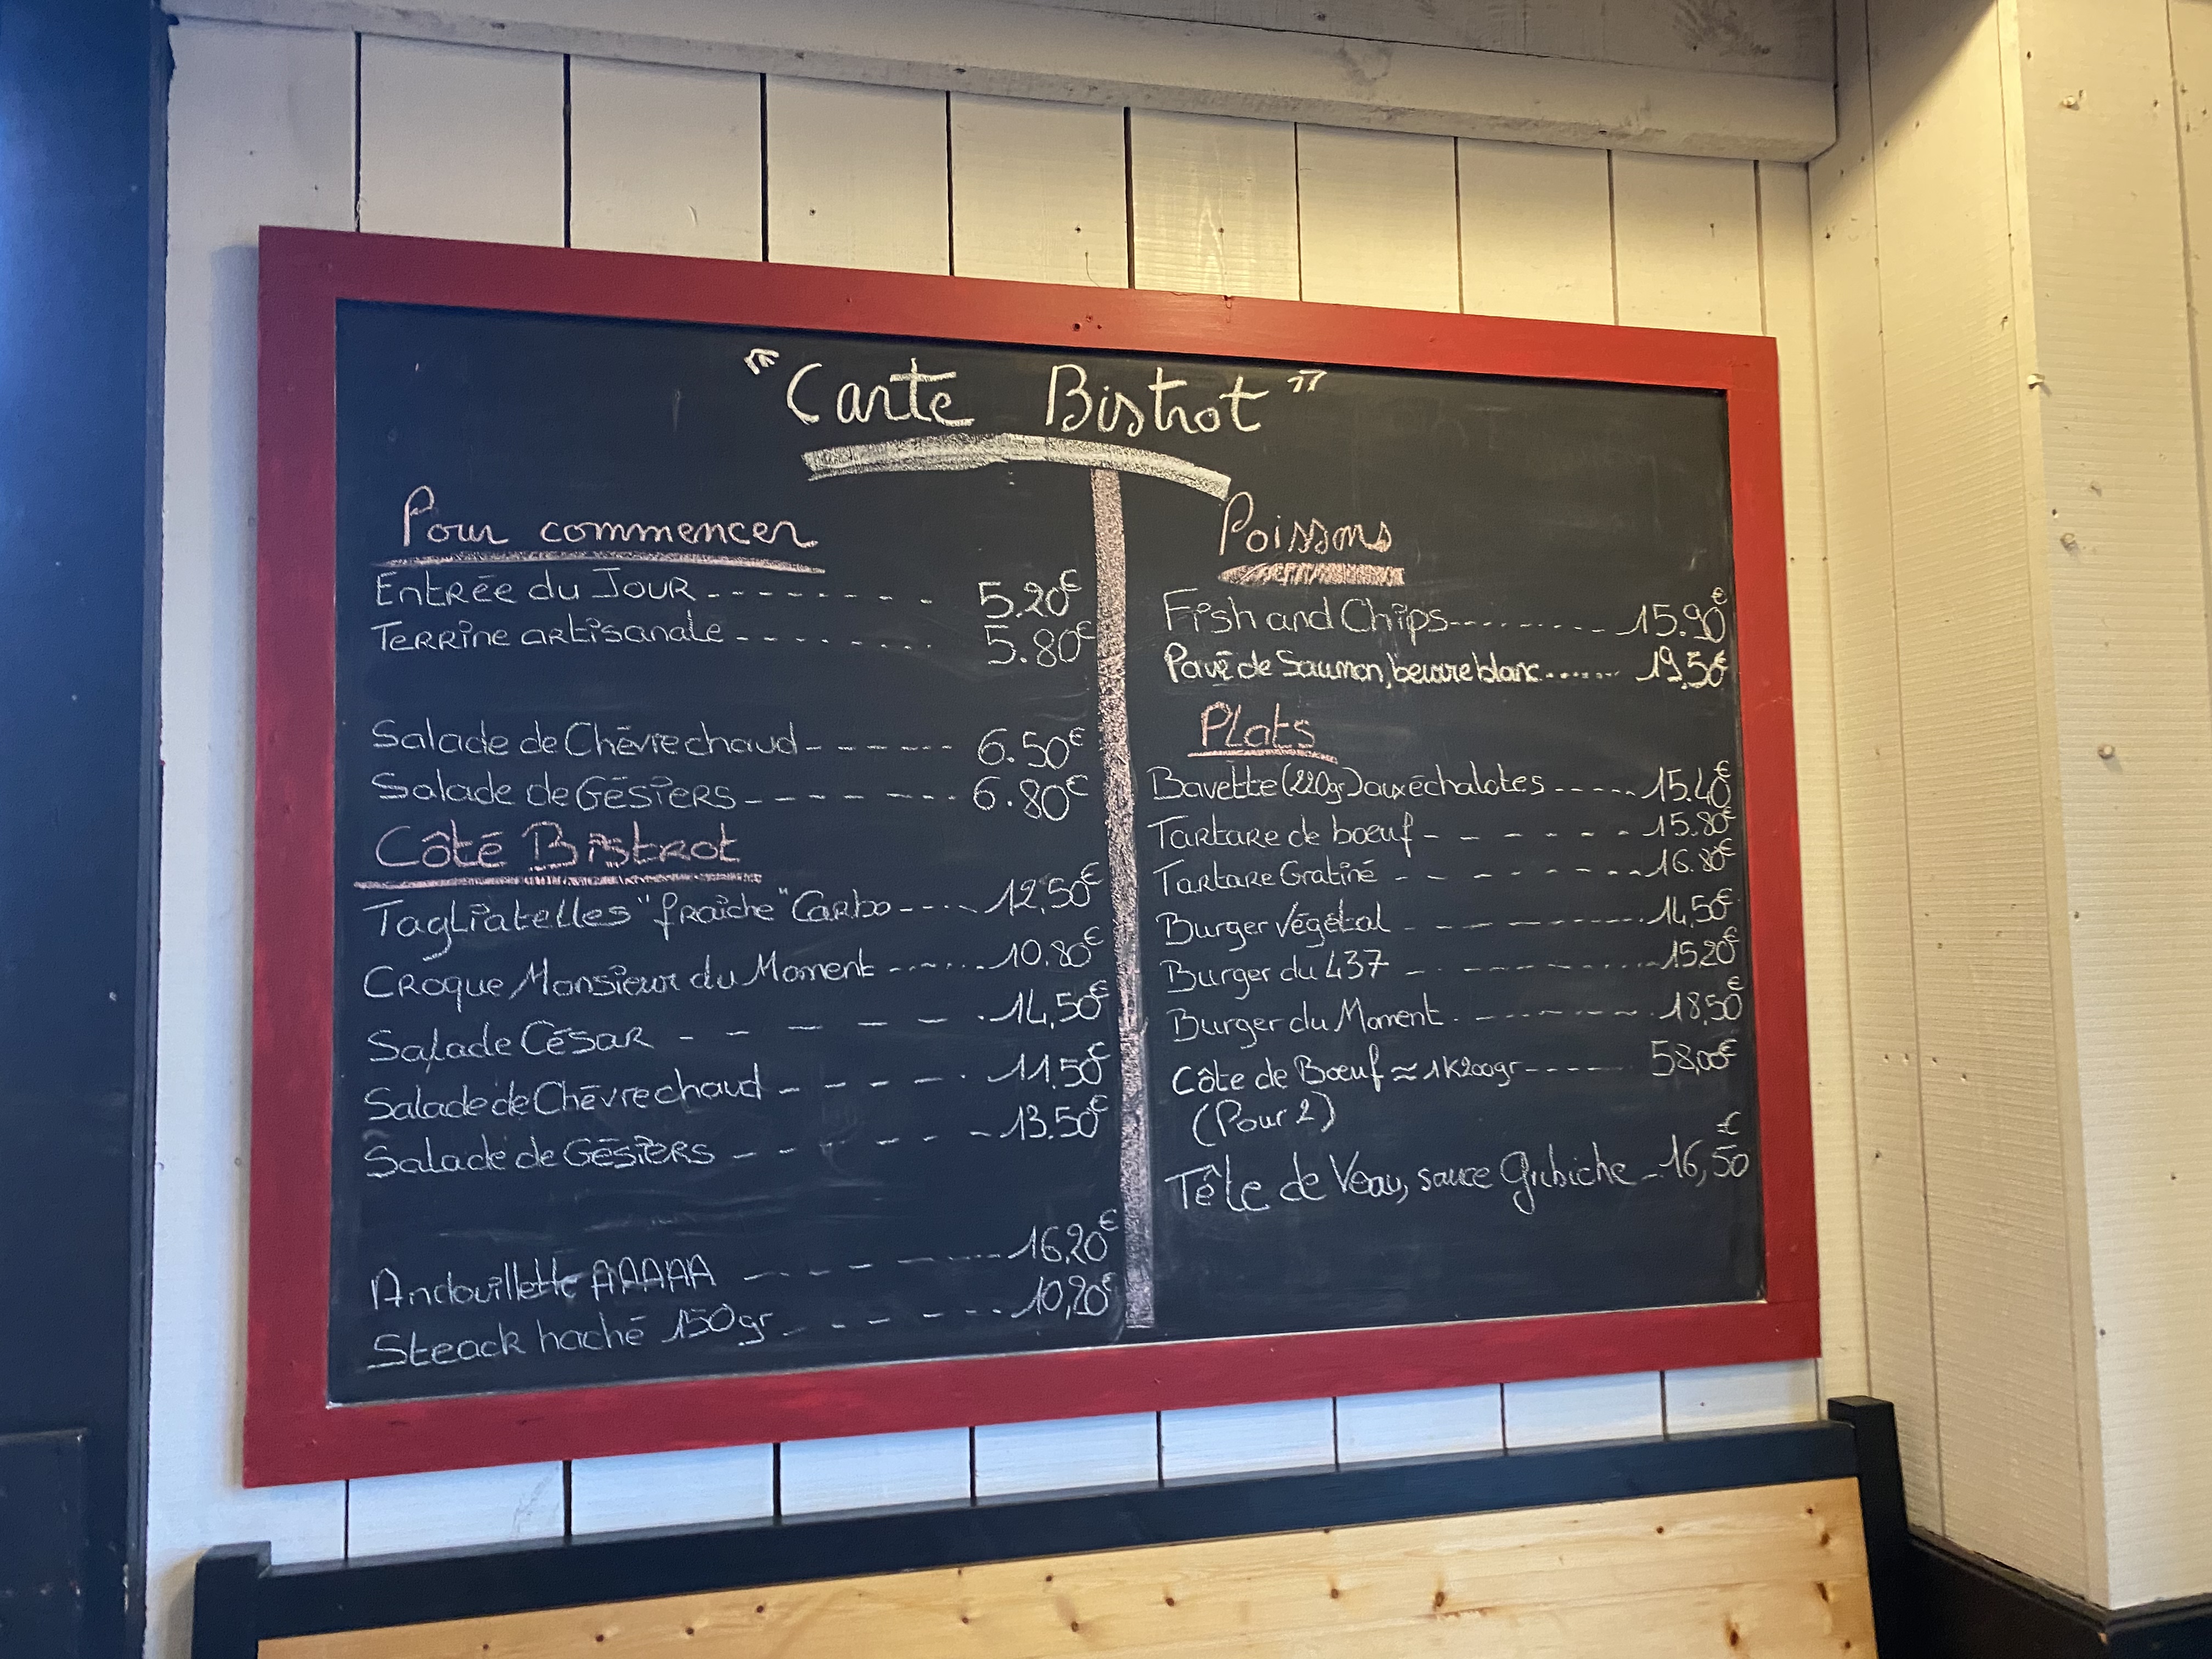 "Carte Bistrot"
Pour commencer
Entrée du Jour 5.20€
Terrine artisanale 5.80€
Salade de Chèvre chaud 6.50€
Salade de Gésiers 6.80€
Côté Bistrot
Tagliatelles "fraîche" Carbo 12,50€
Croque Monsieur du Moment 10.80€
Salade César 14,50€
Salade de Chèvre chaud 11.50€
Salade de Gésiers 13.50€
Andouillette AAAAA 16,20€
Steack haché 150gr 10,20€
Poissons
Fish and Chips 15.90€
Pavé de Saumon, beurre blanc 19,50€
Plats
Bavette (220gr) aux échalotes 15.40€
Tartare de bœuf 15.80€
Tartare Gratiné 16.80€
Burger Végétal 14,50€
Burger du 437 15,20€
Burger du Moment 18,50€
Côte de Bœuf ≈ 1K200gr 58,00€
(Pour 2)
Tête de Veau, sauce Gribiche 16,50€